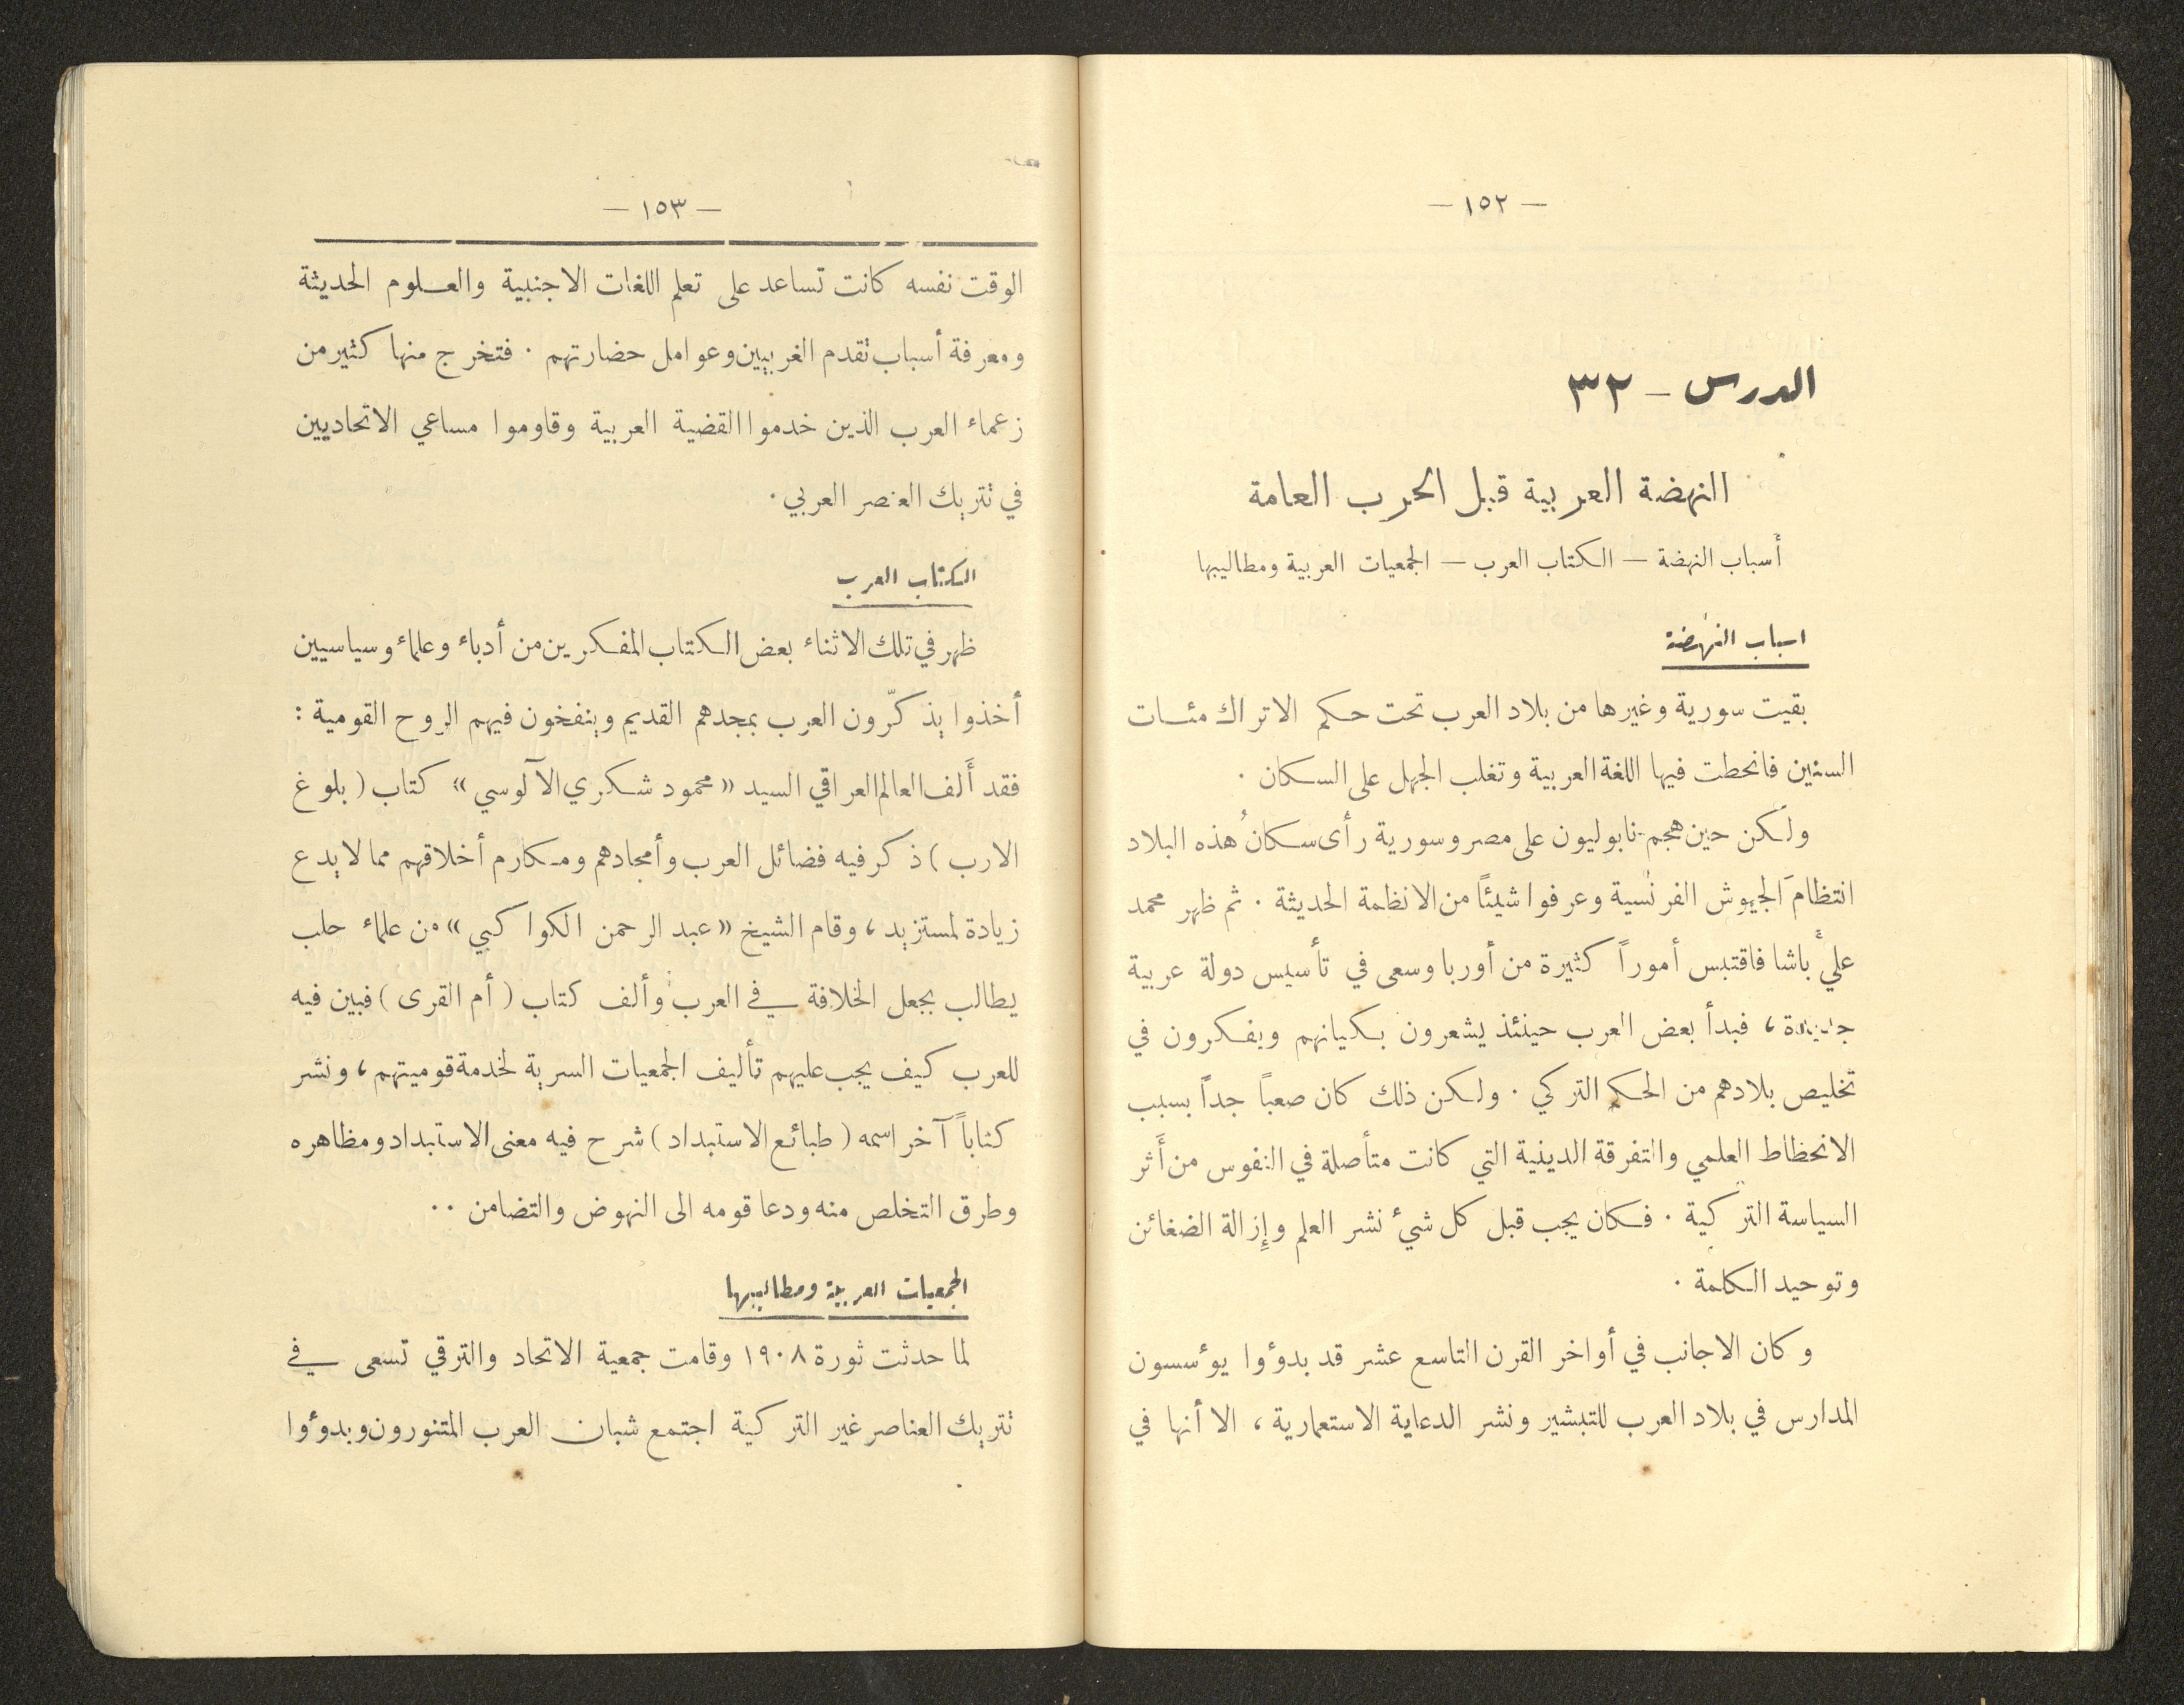 — ١٥٢ —
الدرس — ٣٢
النهضة العربية قبل الحرب العامة
أسباب النهضة — الكتاب العرب — الجمعيات العربية ومطاليبها
اسباب النهضة
بقيت سورية وغيرها من بلاد العرب تحت حكم الاتراك مئات
السنين فانحطت فيها اللغة العربية وتغلب الجهل على السكان .
ولكن حين هجم نابوليون على مصر وسورية رأى سكانُ هذه البلاد
انتظامَ الجيوش الفرنسية وعرفوا شيئاً من الانظمة الحديثة . ثم ظهر محمد
علي باشا فاقتبس أموراً كثيرة من أوربا وسعى في تأسيس دولة عربية
جديدة ، فبدأ بعض العرب حينئذ يشعرون بكيانهم ويفكرون في
تخليص بلادهم من الحكم التركي . ولكن ذلك كان صعباً جداً بسبب
الانحظاط العلمي والتفرقة الدينية التي كانت متأصلة في النفوس من أَثر
السياسة التركية . فكان يجب قبل كل شئ نشر العلم وإِزالة الضغائن
وتوحيد الكلمة .
وكان الاجانب في أواخر القرن التاسع عشر قد بدوٴوا يوٴسسون
المدارس في بلاد العرب للتبشير ونشر الدعاية الاستعمارية ، الا أنها في
— ١٥٣ —
الوقت نفسه كانت تساعد على تعلم اللغات الاجنبية والعلوم الحديثة
ومعرفة أسباب تقدم الغربيين وعوامل حضارتهم . فتخرج منها كثير من
زعماء العرب الذين خدموا القضية العربية وقاوموا مساعي الاتحاديين
في تتريك العنصر العربي .
الكتاب العرب
ظهر في تلك الاثناء بعض الكتاب المفكرين من أدباء وعلماء وسياسيين
أخذوا يذكّرون العرب بمجدهم القديم وينفخون فيهم الروح القومية :
فقد أَلف العالم العراقي السيد « محمود شكري الآلوسي » كتاب ( بلوغ
الارب ) ذكر فيه فضائل العرب وأمجادهم ومكارم أخلاقهم مما لا يدع
زيادة لمستزيد ، وقام الشيخ « عبد الرحمن الكواكبي » من علماء حلب
يطالب بجعل الخلافة في العرب وألف كتاب ( أم القرى ) فبين فيه
للعرب كيف يجب عليهم تأليف الجمعيات السرية لخدمة قوميتهم ، ونشر
كتاباً آخر اسمه ( طبائع الاستبداد ) شرح فيه معنى الاستبداد ومظاهره
وطرق التخلص منه ودعا قومه الى النهوض والتضامن ..
الجمعيات العربية ومطاليبها
لما حدثت ثورة ١٩٠٨ وقامت جمعية الاتحاد والترقي تسعى في
تتريك العناصر غير التركية اجتمع شبان العرب المتنورون وبدوٴوا